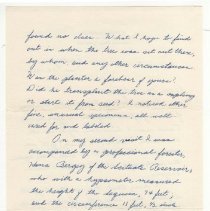 found no clue. What I hope to find
out is when the tree was set out there,
by whom and any other circumstances.
Was the planter a forebear of yours?
Did he transplant the tree as a sapling
or start it from seed? I noticed other
fine, unusual specimens, all well
cared for and labeled.
On my second visit I was
accompanied by a professional forester,
of the Institute
who with a hypsometer measured
the height of the sequoia, 74 feet,
and the circumference 15 feet,